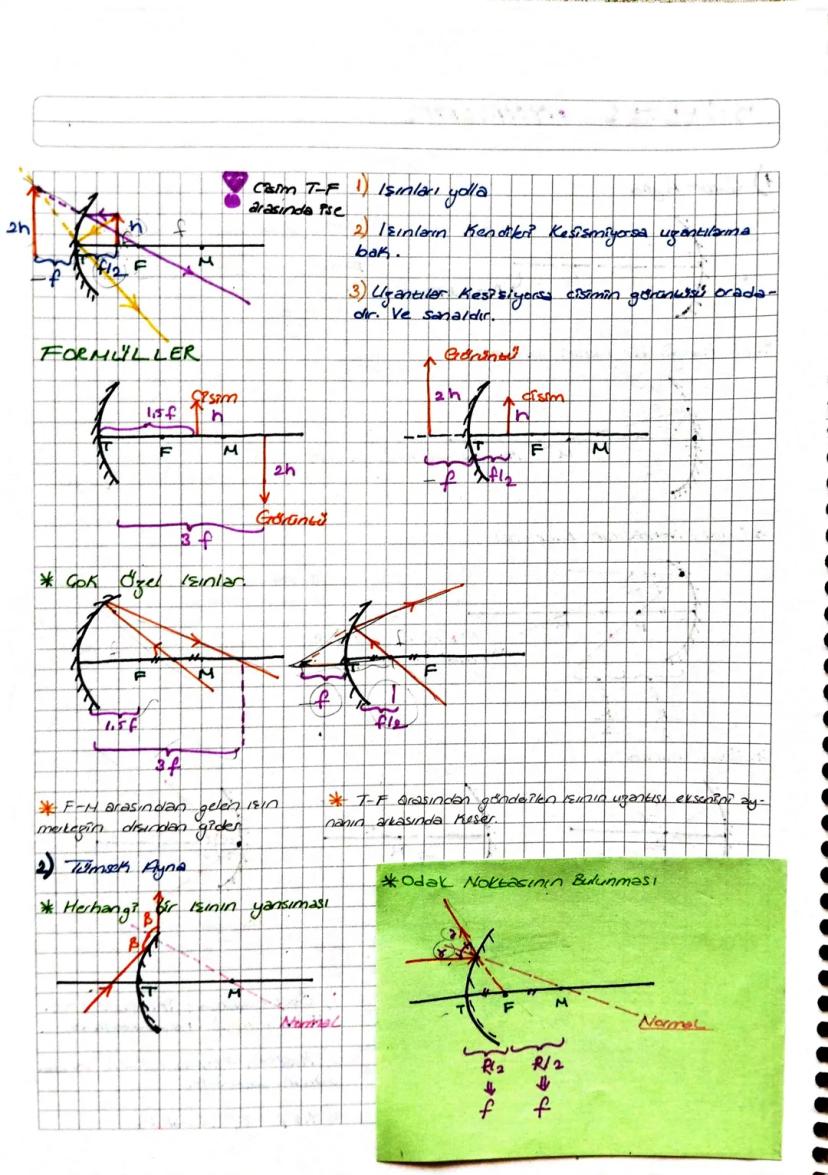 Cisim T-F
arasında ise
1) Işınları yolla
2) Işınların Kendileri Kesişmiyorsa uzantılarına
bak.
3) Uzantılar Kesişiyorsa cisimin görüntüsü orada-
dır. Ve sanaldır.
2h
h
f
T
F
M
-f
f/2
FORMÜLLER
Cisim
1,5f
h
T
F
M
2h
Görüntü
3f
Görüntü
2h
cisim
h
T
F
M
-f
f/2
* Çok Özel Işınlar.
F
M
1,5f
3f
T
F
-f
f/2
* F-M arasından gelen ışın
merkezin dışından gider
* T-F arasından gönderilen ışının uzantısı eksenini ay-
nanın arkasında Keser.
2) Tümsek Ayna
* Herhangi bir ışının yansıması
β
β
T
M
Normal
* Odak Noktasının Bulunması
T
F
M
Normal
R/2
R/2
⇓
⇓
f
f